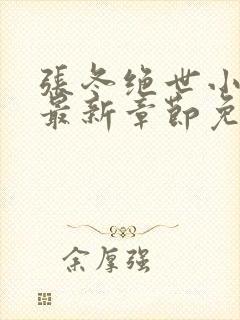 張冬绝世小
最新章節免
余厚强